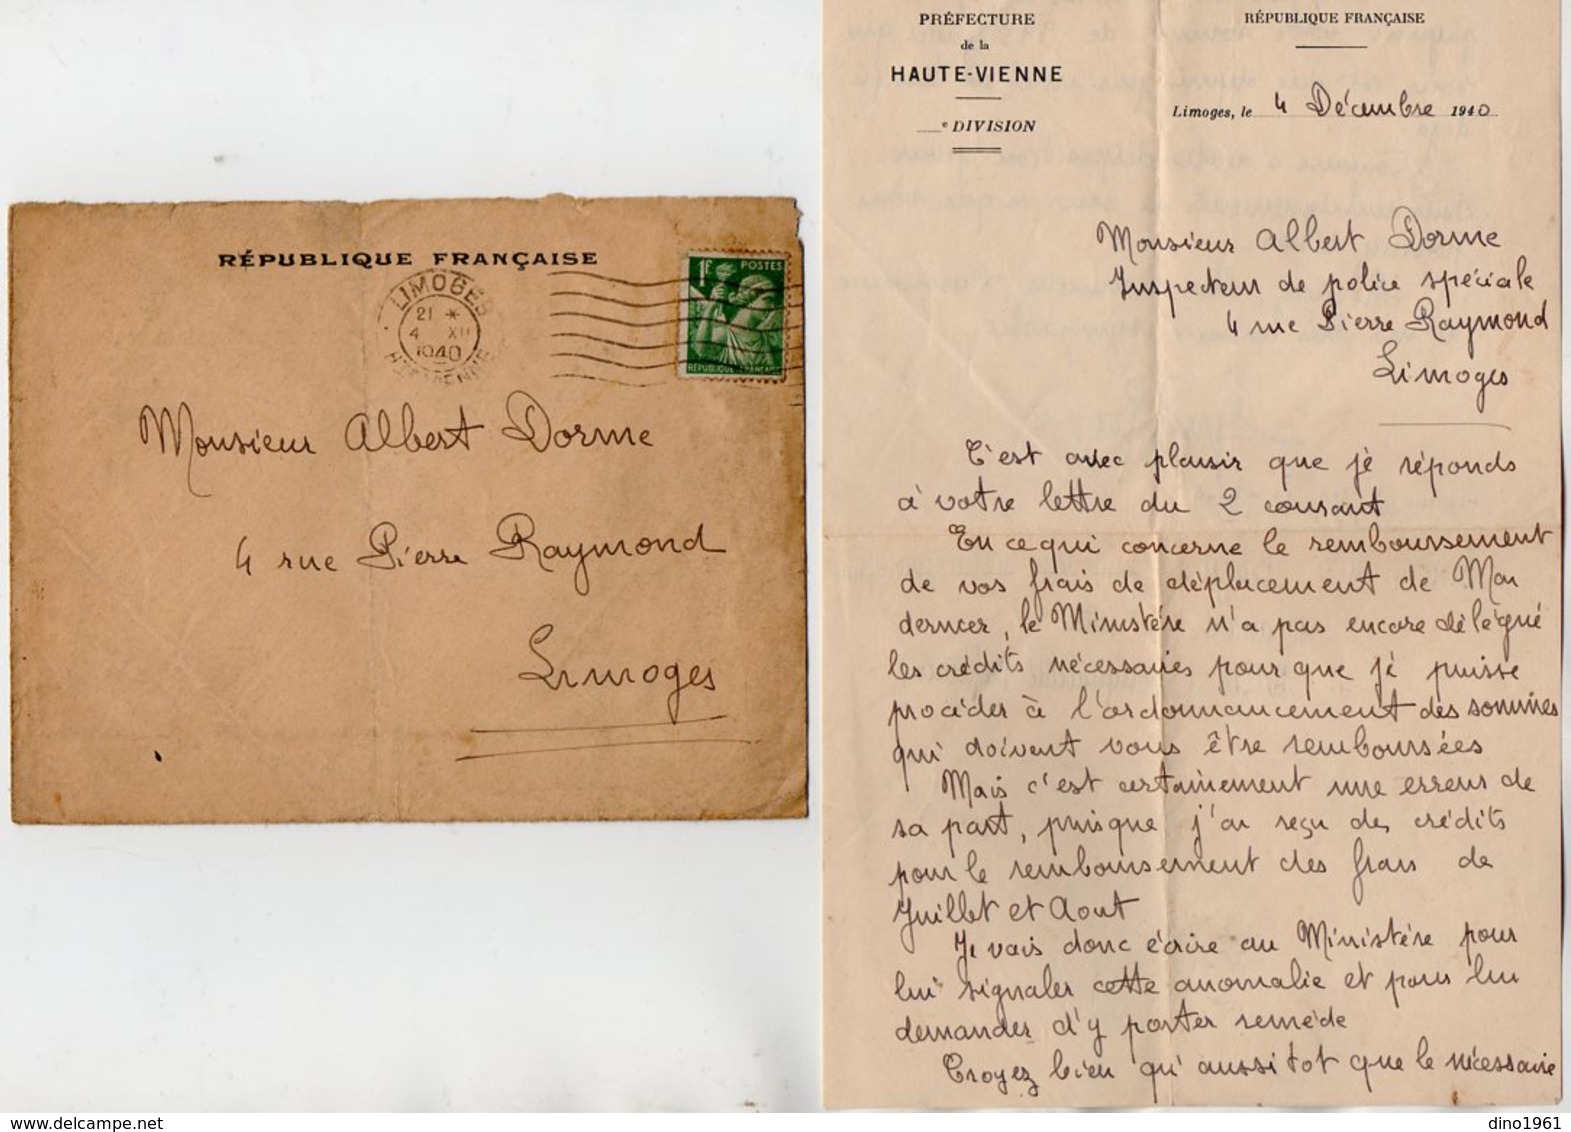 RÉPUBLIQUE FRANÇAISE
LIMOGES
21 *
4 XII
1940
HTE VIENNE
1F POSTES
RÉPUBLIQUE FRANÇAISE
Monsieur Albert Dorme
4 rue Pierre Raymond
Limoges
PRÉFECTURE
de la
HAUTE-VIENNE
e DIVISION
RÉPUBLIQUE FRANÇAISE
Limoges, le 4 Décembre 1940
Monsieur Albert Dorme
Inspecteur de police spéciale
4 rue Pierre Raymond
Limoges
C'est avec plaisir que jè réponds
à votre lettre du 2 courant
En ce qui concerne le remboursement
de vos frais de déplacement de Mai
dernier, le Ministère n'a pas encore délégué
les crédits nécessaires pour que jè puisse
procéder à l'ordonnancement des sommes
qui doivent vous être remboursées
Mais c'est certainement une erreur de
sa part, puisque j'ai reçu des crédits
pour le remboursement des frais de
Juillet et Aout
Je vais donc écrire au Ministère pour
lui signaler cette anomalie et pour lui
demander d'y porter remède
Croyez bien qu'aussitot que le nécessaire
dino1961